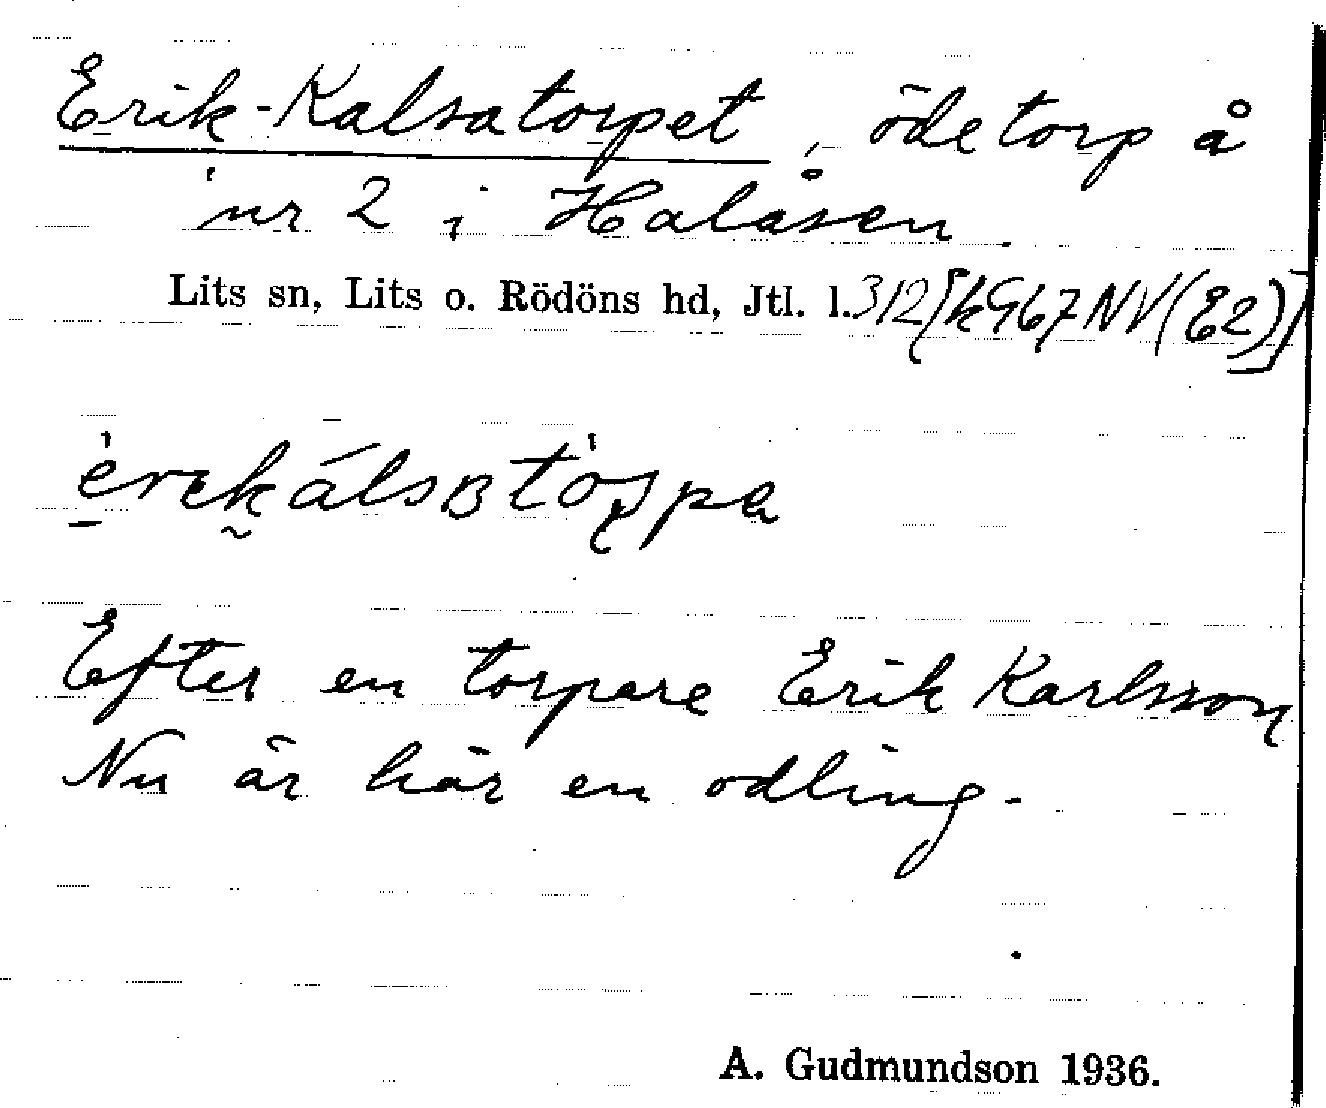 Erik-Kalsatorpet, ödetorp å
nr 2 i Halåsen.
Lits sn, Lits o. Rödöns hd, Jtl. l. 312 [k967NV(E2)]
Efter en torpare Erik Karlsson
Nu är här en odling.
A. Gudmundson 1936.